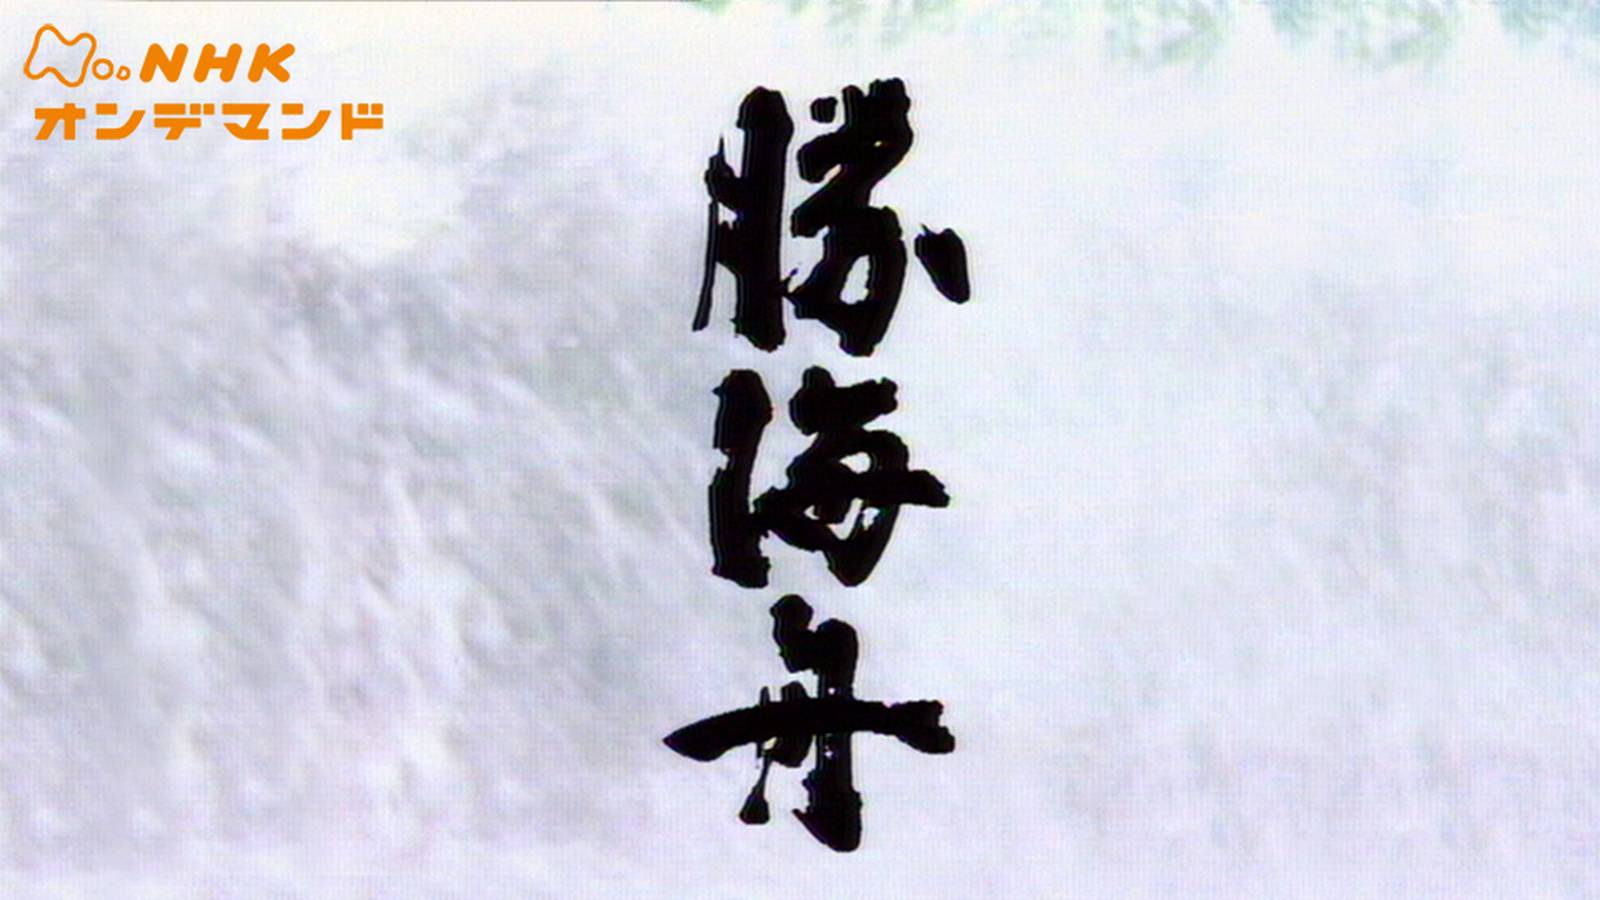 NHK
オンデマンド
勝海舟